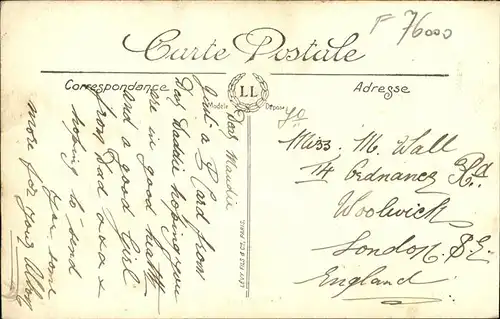 F 76000
Carte Postale
Correspondance
LL
Modèle Déposé
Adresse
LEVY FILS & Cie, PARIS.
Dear Maudie
Just a P Card from
Das Daddie hoping you
are in good health
and a good Girl
from Dad x x x x
hoping to send
you some
more for your Album
To
Miss. M. Wall
14 Ordnance Rd
Woolwich
London S.E.
England